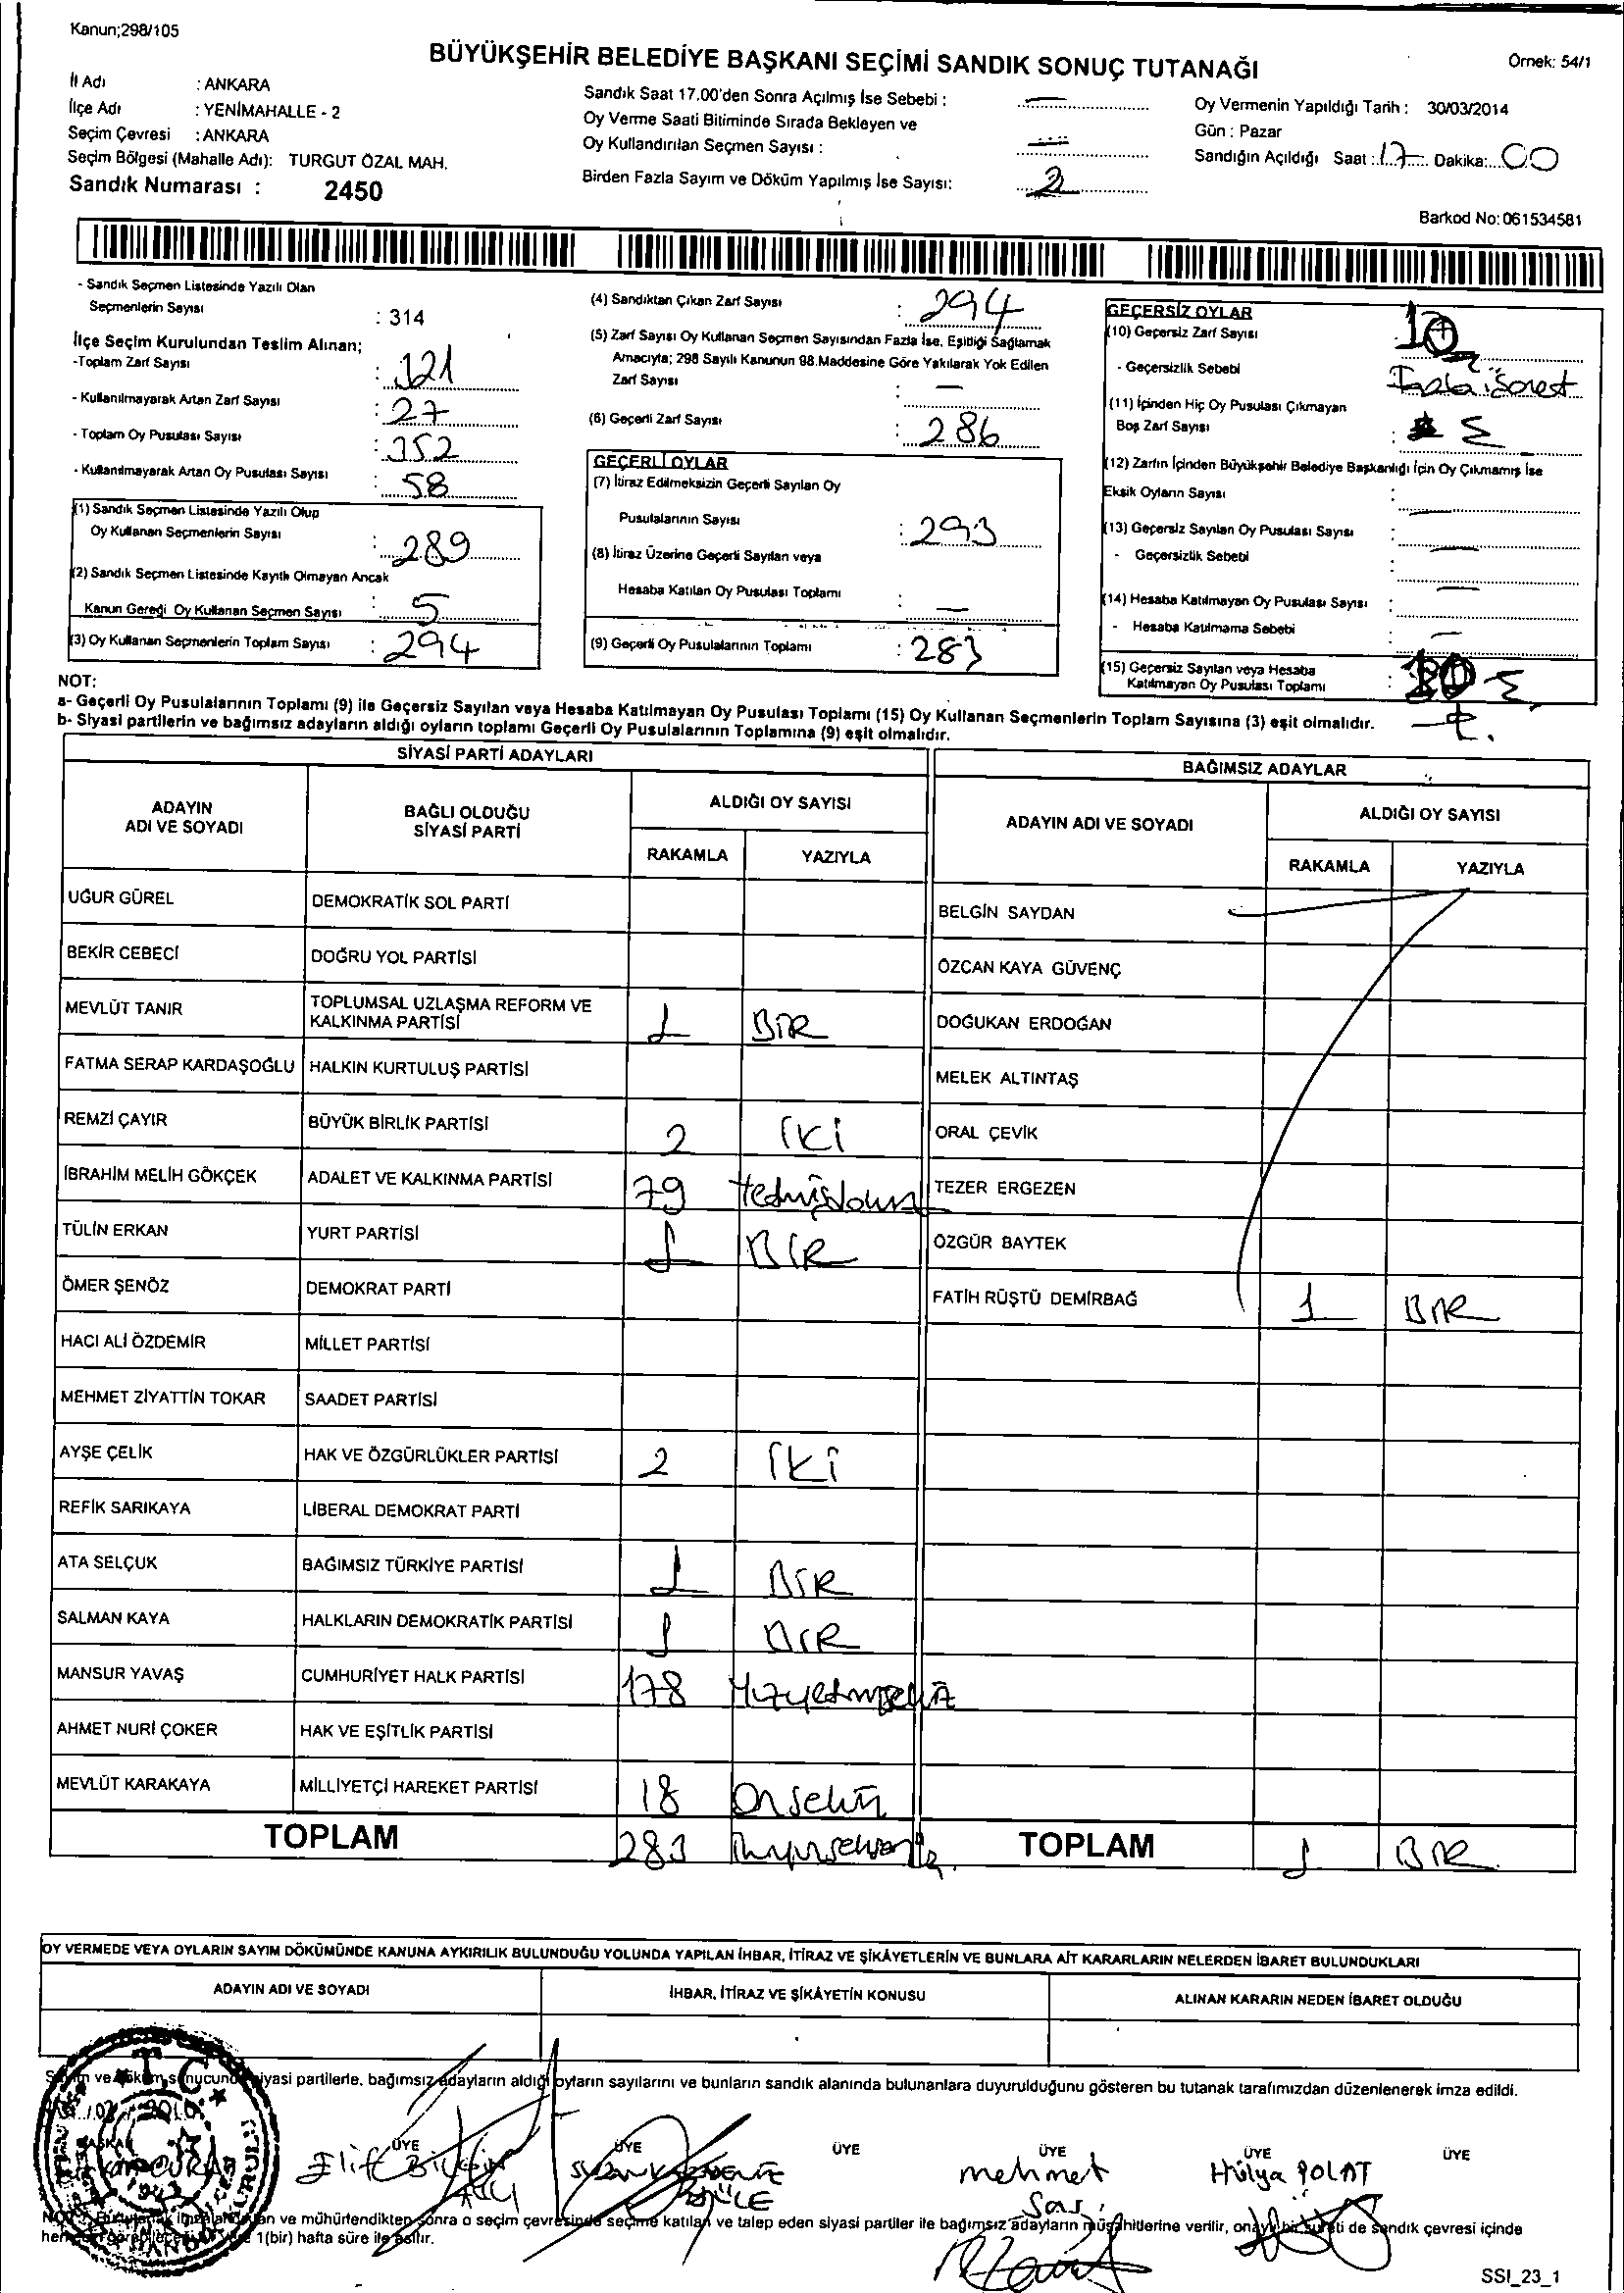 Kanun;298/105
BÜYÜKŞEHİR BELEDİYE BAŞKANI SEÇİMİ SANDIK SONUÇ TUTANAĞI
Örnek: 54/1
İl Adı : ANKARA
İlçe Adı : YENİMAHALLE - 2
Seçim Çevresi : ANKARA
Seçim Bölgesi (Mahalle Adı): TURGUT ÖZAL MAH.
Sandık Numarası : 2450
Sandık Saat 17.00'den Sonra Açılmış İse Sebebi : —
Oy Verme Saati Bitiminde Sırada Bekleyen ve
Oy Kullandırılan Seçmen Sayısı : —
Birden Fazla Sayım ve Döküm Yapılmış İse Sayısı: 2
Oy Vermenin Yapıldığı Tarih : 30/03/2014
Gün : Pazar
Sandığın Açıldığı Saat : 17 Dakika: 00
Barkod No: 061534581
- Sandık Seçmen Listesinde Yazılı Olan
Seçmenlerin Sayısı : 314
İlçe Seçim Kurulundan Teslim Alınan;
-Toplam Zarf Sayısı : 321
- Kullanılmayarak Artan Zarf Sayısı : 27
- Toplam Oy Pusulası Sayısı : 352
- Kullanılmayarak Artan Oy Pusulası Sayısı : 58
(1) Sandık Seçmen Listesinde Yazılı Olup
Oy Kullanan Seçmenlerin Sayısı : 289
(2) Sandık Seçmen Listesinde Kayıtlı Olmayan Ancak
Kanun Gereği Oy Kullanan Seçmen Sayısı : 5
(3) Oy Kullanan Seçmenlerin Toplam Sayısı : 294
(4) Sandıktan Çıkan Zarf Sayısı : 294
(5) Zarf Sayısı Oy Kullanan Seçmen Sayısından Fazla İse, Eşitliği Sağlamak
Amacıyla; 298 Sayılı Kanunun 98.Maddesine Göre Yakılarak Yok Edilen
Zarf Sayısı : —
(6) Geçerli Zarf Sayısı : 286
GEÇERLİ OYLAR
(7) İtiraz Edilmeksizin Geçerli Sayılan Oy
Pusulalarının Sayısı : 293
(8) İtiraz Üzerine Geçerli Sayılan veya
Hesaba Katılan Oy Pusulası Toplamı : —
(9) Geçerli Oy Pusulalarının Toplamı : 283
GEÇERSİZ OYLAR
(10) Geçersiz Zarf Sayısı : 10
- Geçersizlik Sebebi
(11) İçinden Hiç Oy Pusulası Çıkmayan
Boş Zarf Sayısı :
(12) Zarfın İçinden Büyükşehir Belediye Başkanlığı İçin Oy Çıkmamış İse
Eksik Oyların Sayısı : —
(13) Geçersiz Sayılan Oy Pusulası Sayısı : —
- Geçersizlik Sebebi :
(14) Hesaba Katılmayan Oy Pusulası Sayısı : —
- Hesaba Katılmama Sebebi : —
(15) Geçersiz Sayılan veya Hesaba
Katılmayan Oy Pusulası Toplamı :
NOT:
a- Geçerli Oy Pusulalarının Toplamı (9) ile Geçersiz Sayılan veya Hesaba Katılmayan Oy Pusulası Toplamı (15) Oy Kullanan Seçmenlerin Toplam Sayısına (3) eşit olmalıdır.
b- Siyasi partilerin ve bağımsız adayların aldığı oyların toplamı Geçerli Oy Pusulalarının Toplamına (9) eşit olmalıdır.
SİYASİ PARTİ ADAYLARI
ADAYIN ADI VE SOYADI BAĞLI OLDUĞU SİYASİ PARTİ ALDIĞI OY SAYISI
RAKAMLA YAZIYLA
UĞUR GÜREL DEMOKRATİK SOL PARTİ
BEKİR CEBECİ DOĞRU YOL PARTİSİ
MEVLÜT TANIR TOPLUMSAL UZLAŞMA REFORM VE KALKINMA PARTİSİ 1 BİR
FATMA SERAP KARDAŞOĞLU HALKIN KURTULUŞ PARTİSİ
REMZİ ÇAYIR BÜYÜK BİRLİK PARTİSİ 2 İKİ
İBRAHİM MELİH GÖKÇEK ADALET VE KALKINMA PARTİSİ 79
TÜLİN ERKAN YURT PARTİSİ 1 BİR
ÖMER ŞENÖZ DEMOKRAT PARTİ
HACI ALİ ÖZDEMİR MİLLET PARTİSİ
MEHMET ZİYATTİN TOKAR SAADET PARTİSİ
AYŞE ÇELİK HAK VE ÖZGÜRLÜKLER PARTİSİ 2 İKİ
REFİK SARIKAYA LİBERAL DEMOKRAT PARTİ
ATA SELÇUK BAĞIMSIZ TÜRKİYE PARTİSİ 1 BİR
SALMAN KAYA HALKLARIN DEMOKRATİK PARTİSİ 1 BİR
MANSUR YAVAŞ CUMHURİYET HALK PARTİSİ 178
AHMET NURİ ÇOKER HAK VE EŞİTLİK PARTİSİ
MEVLÜT KARAKAYA MİLLİYETÇİ HAREKET PARTİSİ 18 Onsekiz
TOPLAM 283
BAĞIMSIZ ADAYLAR
ADAYIN ADI VE SOYADI ALDIĞI OY SAYISI
RAKAMLA YAZIYLA
BELGİN SAYDAN
ÖZCAN KAYA GÜVENÇ
DOĞUKAN ERDOĞAN
MELEK ALTINTAŞ
ORAL ÇEVİK
TEZER ERGEZEN
ÖZGÜR BAYTEK
FATİH RÜŞTÜ DEMİRBAĞ 1 BİR
TOPLAM 1 BİR
OY VERMEDE VEYA OYLARIN SAYIM DÖKÜMÜNDE KANUNA AYKIRILIK BULUNDUĞU YOLUNDA YAPILAN İHBAR, İTİRAZ VE ŞİKÂYETLERİN VE BUNLARA AİT KARARLARIN NELERDEN İBARET BULUNDUKLARI
ADAYIN ADI VE SOYADI İHBAR, İTİRAZ VE ŞİKÂYETİN KONUSU ALINAN KARARIN NEDEN İBARET OLDUĞU
siyasi partilerle, bağımsız adayların aldığı oyların sayılarını ve bunların sandık alanında bulunanlara duyurulduğunu gösteren bu tutanak tarafımızdan düzenlenerek imza edildi.
BAŞKAN ÜYE ÜYE ÜYE ÜYE ÜYE ÜYE
Elif mehmet Hülya POLAT
ve mühürlendikten sonra o seçim çevresinde seçime katılan ve talep eden siyasi partiler ile bağımsız adayların müşahitlerine verilir, onaylı bir sureti de sandık çevresi içinde
1(bir) hafta süre ile asılır.
SSI_23_1